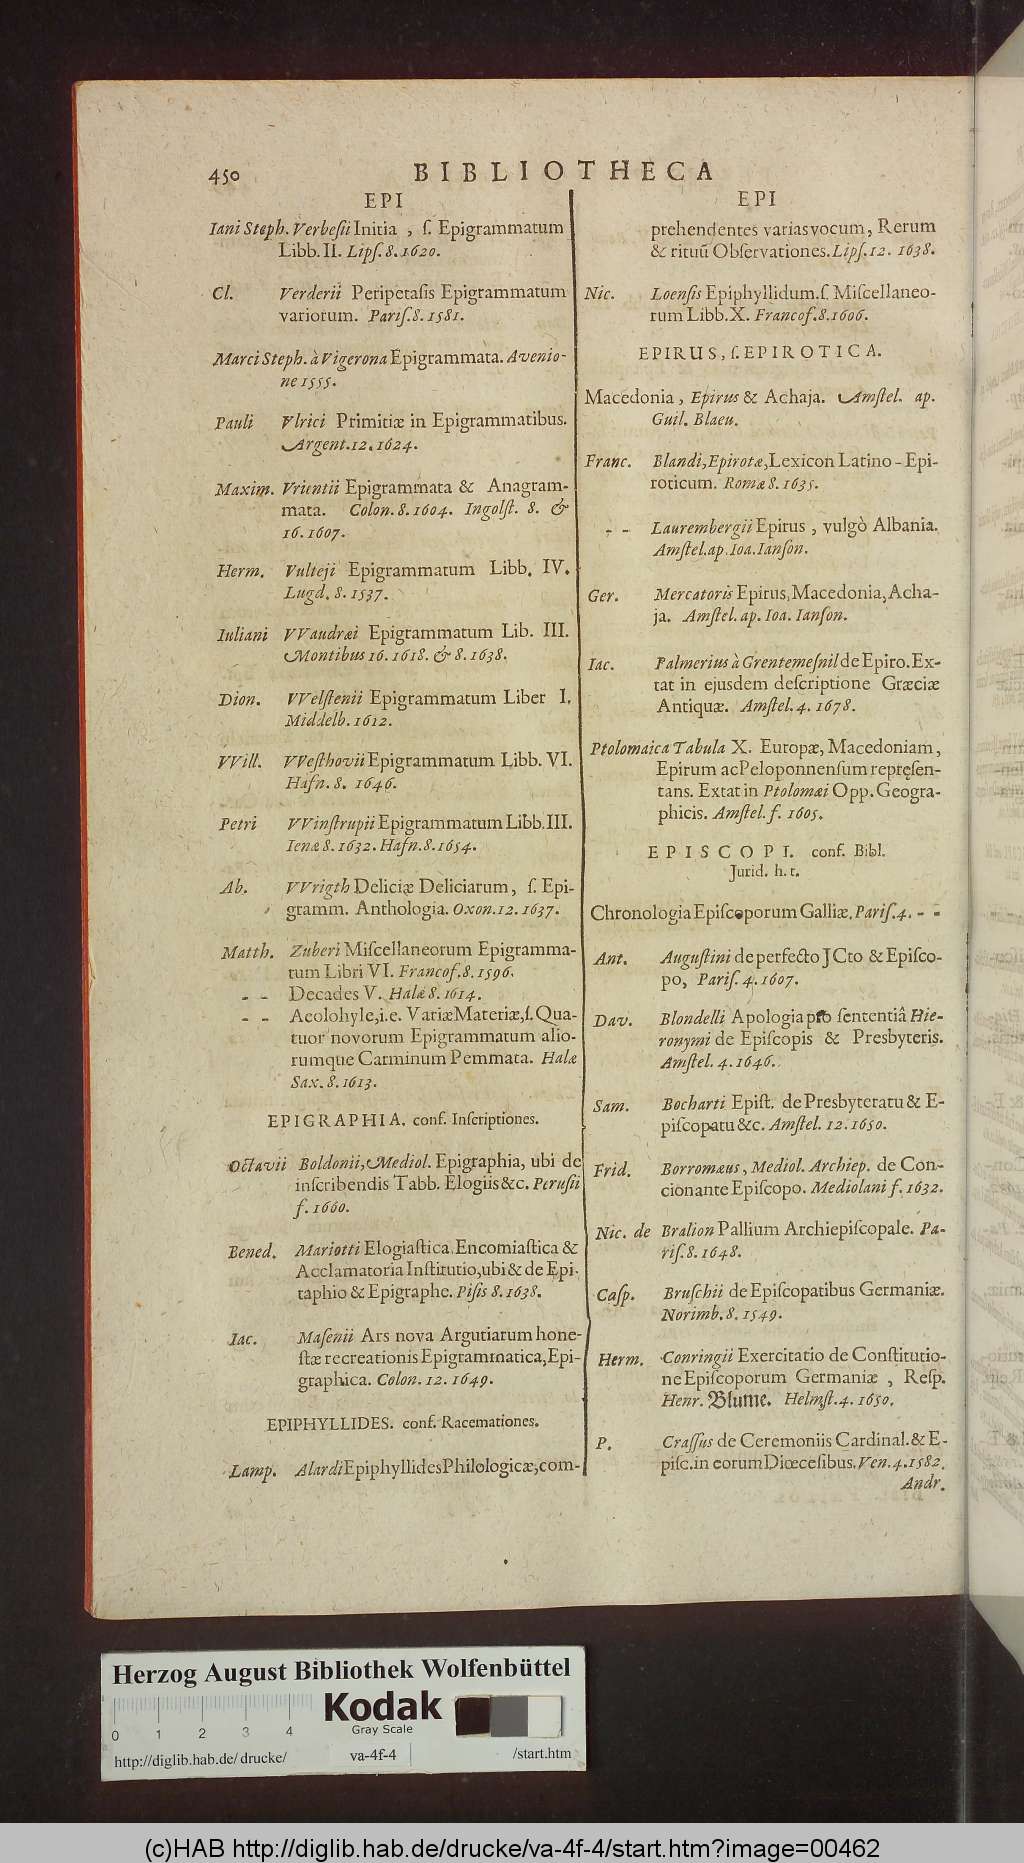 450 BIBLIOTHECA
EPI
Iani Steph. Verbesii Initia , ſ. Epigrammatum
Libb. II. Lipſ. 8. 1620.
Cl. Verderii Peripetasis Epigrammatum
variorum. Pariſ. 8. 1581.
Marci Steph. à Vigerona Epigrammata. Avenio-
ne 1555.
Pauli Vlrici Primitiæ in Epigrammatibus.
Argent. 12. 1624.
Maxim. Vrientii Epigrammata & Anagram-
mata. Colon. 8. 1604. Ingolſt. 8. &
16. 1607.
Herm. Vulteji Epigrammatum Libb. IV.
Lugd. 8. 1537.
Iuliani VVaudræi Epigrammatum Lib. III.
Montibus 16. 1618. & 8. 1638.
Dion. VVelſtenii Epigrammatum Liber I.
Middelb. 1612.
VVill. VVeſthovii Epigrammatum Libb. VI.
Hafn. 8. 1646.
Petri VVinſtrupii Epigrammatum Libb. III.
Ienæ 8. 1632. Hafn. 8. 1654.
Ab. VVrigth Deliciæ Deliciarum, ſ. Epi-
gramm. Anthologia. Oxon. 12. 1637.
Matth. Zuberi Miſcellaneorum Epigramma-
tum Libri VI. Francof. 8. 1596.
- - Decades V. Halæ 8. 1614.
- - Aeolohyle, i.e. Variæ Materiæ, ſ. Qua-
tuor novorum Epigrammatum alio-
rumque Carminum Pemmata. Halæ
Sax. 8. 1613.
EPIGRAPHIA. conf. Inſcriptiones.
Octavii Boldonii, Mediol. Epigraphia, ubi de
inſcribendis Tabb. Elogiis &c. Peruſii
f. 1660.
Bened. Mariotti Elogiaſtica. Encomiaſtica &
Acclamatoria Inſtitutio, ubi & de Epi-
taphio & Epigraphe. Piſis 8. 1638.
Iac. Maſenii Ars nova Argutiarum hone-
ſtæ recreationis Epigrammatica, Epi-
graphica. Colon. 12. 1649.
EPIPHYLLIDES. conf. Racemationes.
Lamp. Alardi Epiphyllides Philologicæ, com-
EPI
prehendentes varias vocum, Rerum
& rituū Obſervationes. Lipſ. 12. 1638.
Nic. Loenſis Epiphyllidum. ſ. Miſcellaneo-
rum Libb. X. Francof. 8. 1606.
EPIRUS, ſ. EPIROTICA.
Macedonia, Epirus & Achaja. Amſtel. ap.
Guil. Blaeu.
Franc. Blandi, Epirotæ, Lexicon Latino-Epi-
roticum. Romæ 8. 1635.
- - Laurembergii Epirus, vulgò Albania.
Amſtel. ap. Ioa. Ianſon.
Ger. Mercatoris Epirus, Macedonia, Acha-
ja. Amſtel. ap. Ioa. Ianſon.
Iac. Palmerius à Grentemeſnil de Epiro. Ex-
tat in ejusdem deſcriptione Græciæ
Antiquæ. Amſtel. 4. 1678.
Ptolomaica Tabula X. Europæ, Macedoniam,
Epirum ac Peloponnenſum repręſen-
tans. Extat in Ptolomæi Opp. Geogra-
phicis. Amſtel. f. 1605.
EPISCOPI. conf. Bibl.
Jurid. h. t.
Chronologia Epiſcoporum Galliæ. Pariſ. 4. - -
Ant. Auguſtini de perfecto JCto & Epiſco-
po, Pariſ. 4. 1607.
Dav. Blondelli Apologia pro ſententiâ Hie-
ronymi de Epiſcopis & Presbyteris.
Amſtel. 4. 1646.
Sam. Bocharti Epiſt. de Presbyteratu & E-
piſcopatu &c. Amſtel. 12. 1650.
Frid. Borromæus, Mediol. Archiep. de Con-
cionante Epiſcopo. Mediolani f. 1632.
Nic. de Bralion Pallium Archiepiſcopale. Pa-
riſ. 8. 1648.
Caſp. Bruſchii de Epiſcopatibus Germaniæ.
Norimb. 8. 1549.
Herm. Conringii Exercitatio de Conſtitutio-
ne Epiſcoporum Germaniæ, Reſp.
Henr. Blume. Helmſt. 4. 1650.
P. Craſſus de Ceremoniis Cardinal. & E-
piſc. in eorum Diœceſibus. Ven. 4. 1582.
Andr.
Herzog August Bibliothek Wolfenbüttel
Kodak
Gray Scale
0 1 2 3 4
http://diglib.hab.de/drucke/ va-4f-4 /start.htm
(c)HAB http://diglib.hab.de/drucke/va-4f-4/start.htm?image=00462